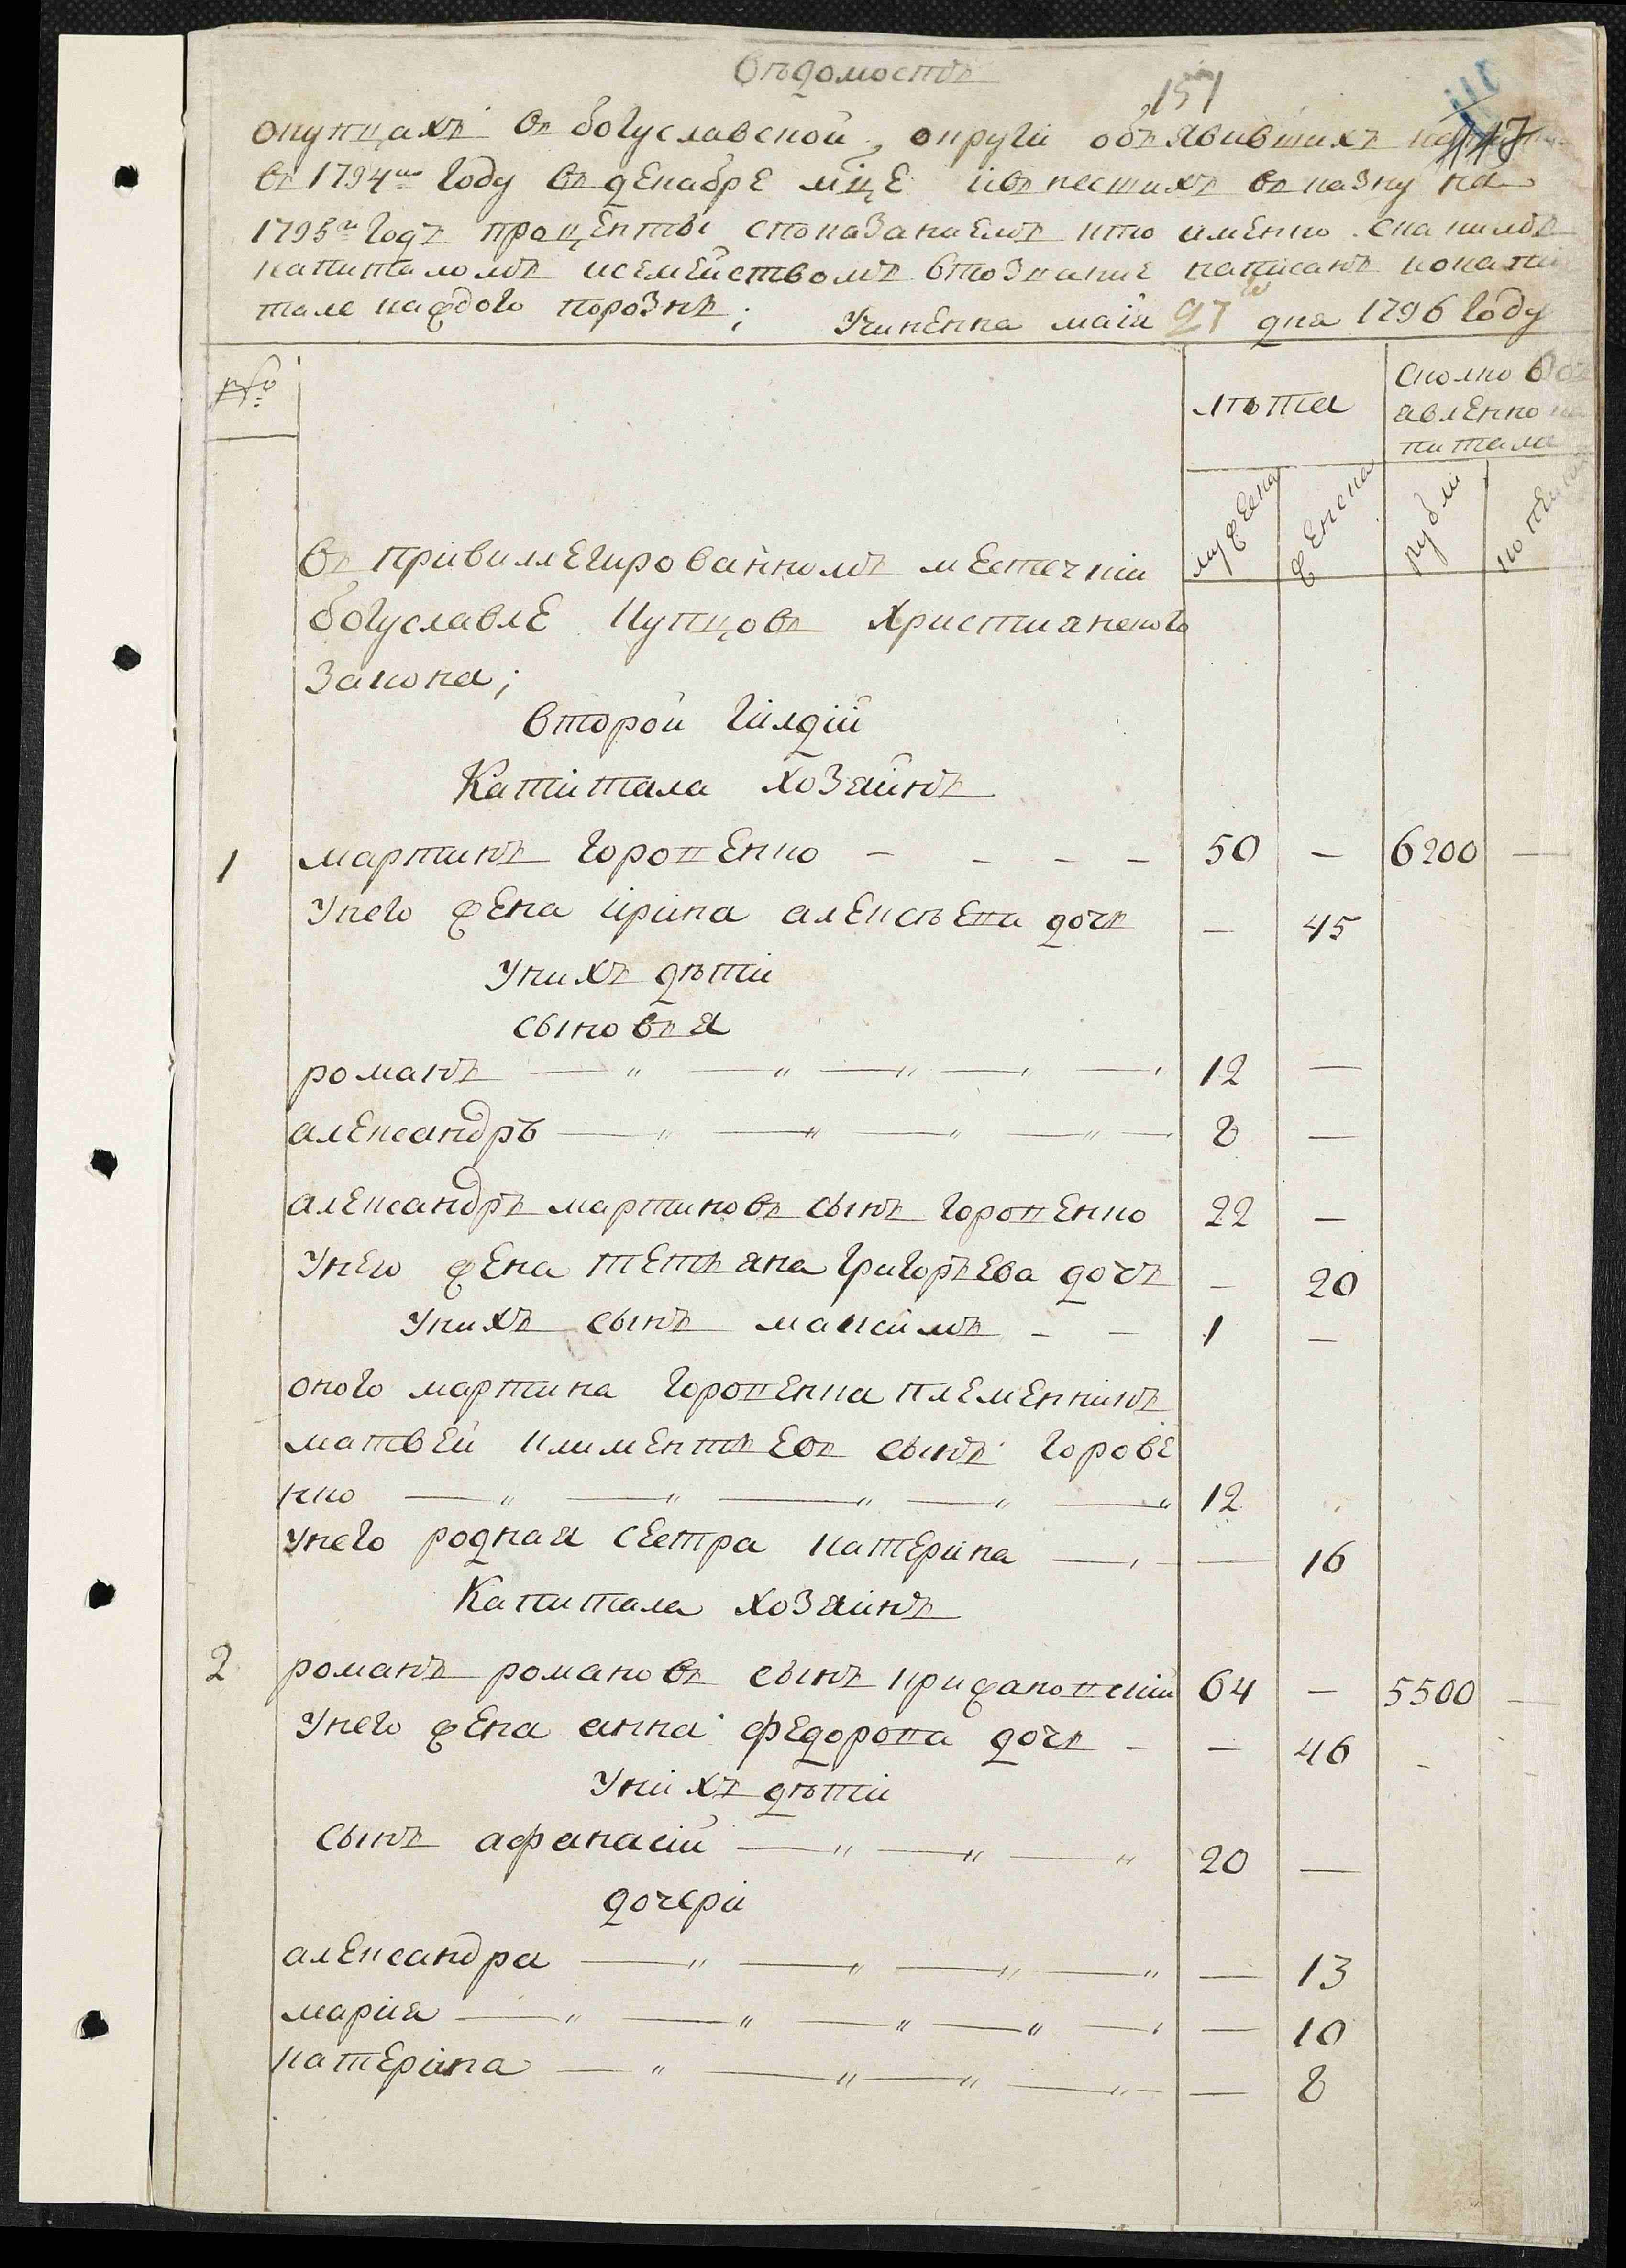 Вѣдомость
151
окупцахъ въ богуславской округи объявившихъ
въ 1794мъ году въ декабре мцѣ ивнесшихъ въ казну на
1795й годъ проценты споказаниемъ кто именно скакимъ
капиталомъ исемействомъ втознание написанъ иокапи
тале каждого порознъ; Учиненна маія 27 дня 1796 году
№
лѣта
сколко объ
явленно ка
питала
мужеска
женска
рубли
копеики
въ привиллегированномъ местечкіи
богуславле купцовъ христианского
закона;
второй гилдіи
Капитала хозяинъ
1 мартинъ горовенко — — — — 50 — 6200 —
Унего жена ирина алексѣева дочь — 45
Унихъ дѣти
сыновья
романъ 12 —
александръ 8 —
александръ мартиновъ сынъ горовенко 22 —
Унего жена тетьяна григорьева дочь — 20
Унихъ сынъ максимъ — — 1 —
оного мартина горовенка племенникъ
матвей климентьевъ сынъ горове
нко 12
Унего родная сестра катерина — 16
Капитала хозяинъ
2 романъ романовъ сынъ крижановскіи 64 — 5500 —
Унего жена анна федорова дочь — — 46
Унихъ дѣти
сынъ афанасіи 20 —
дочери
александра — 13
мария — 10
катерина — 8